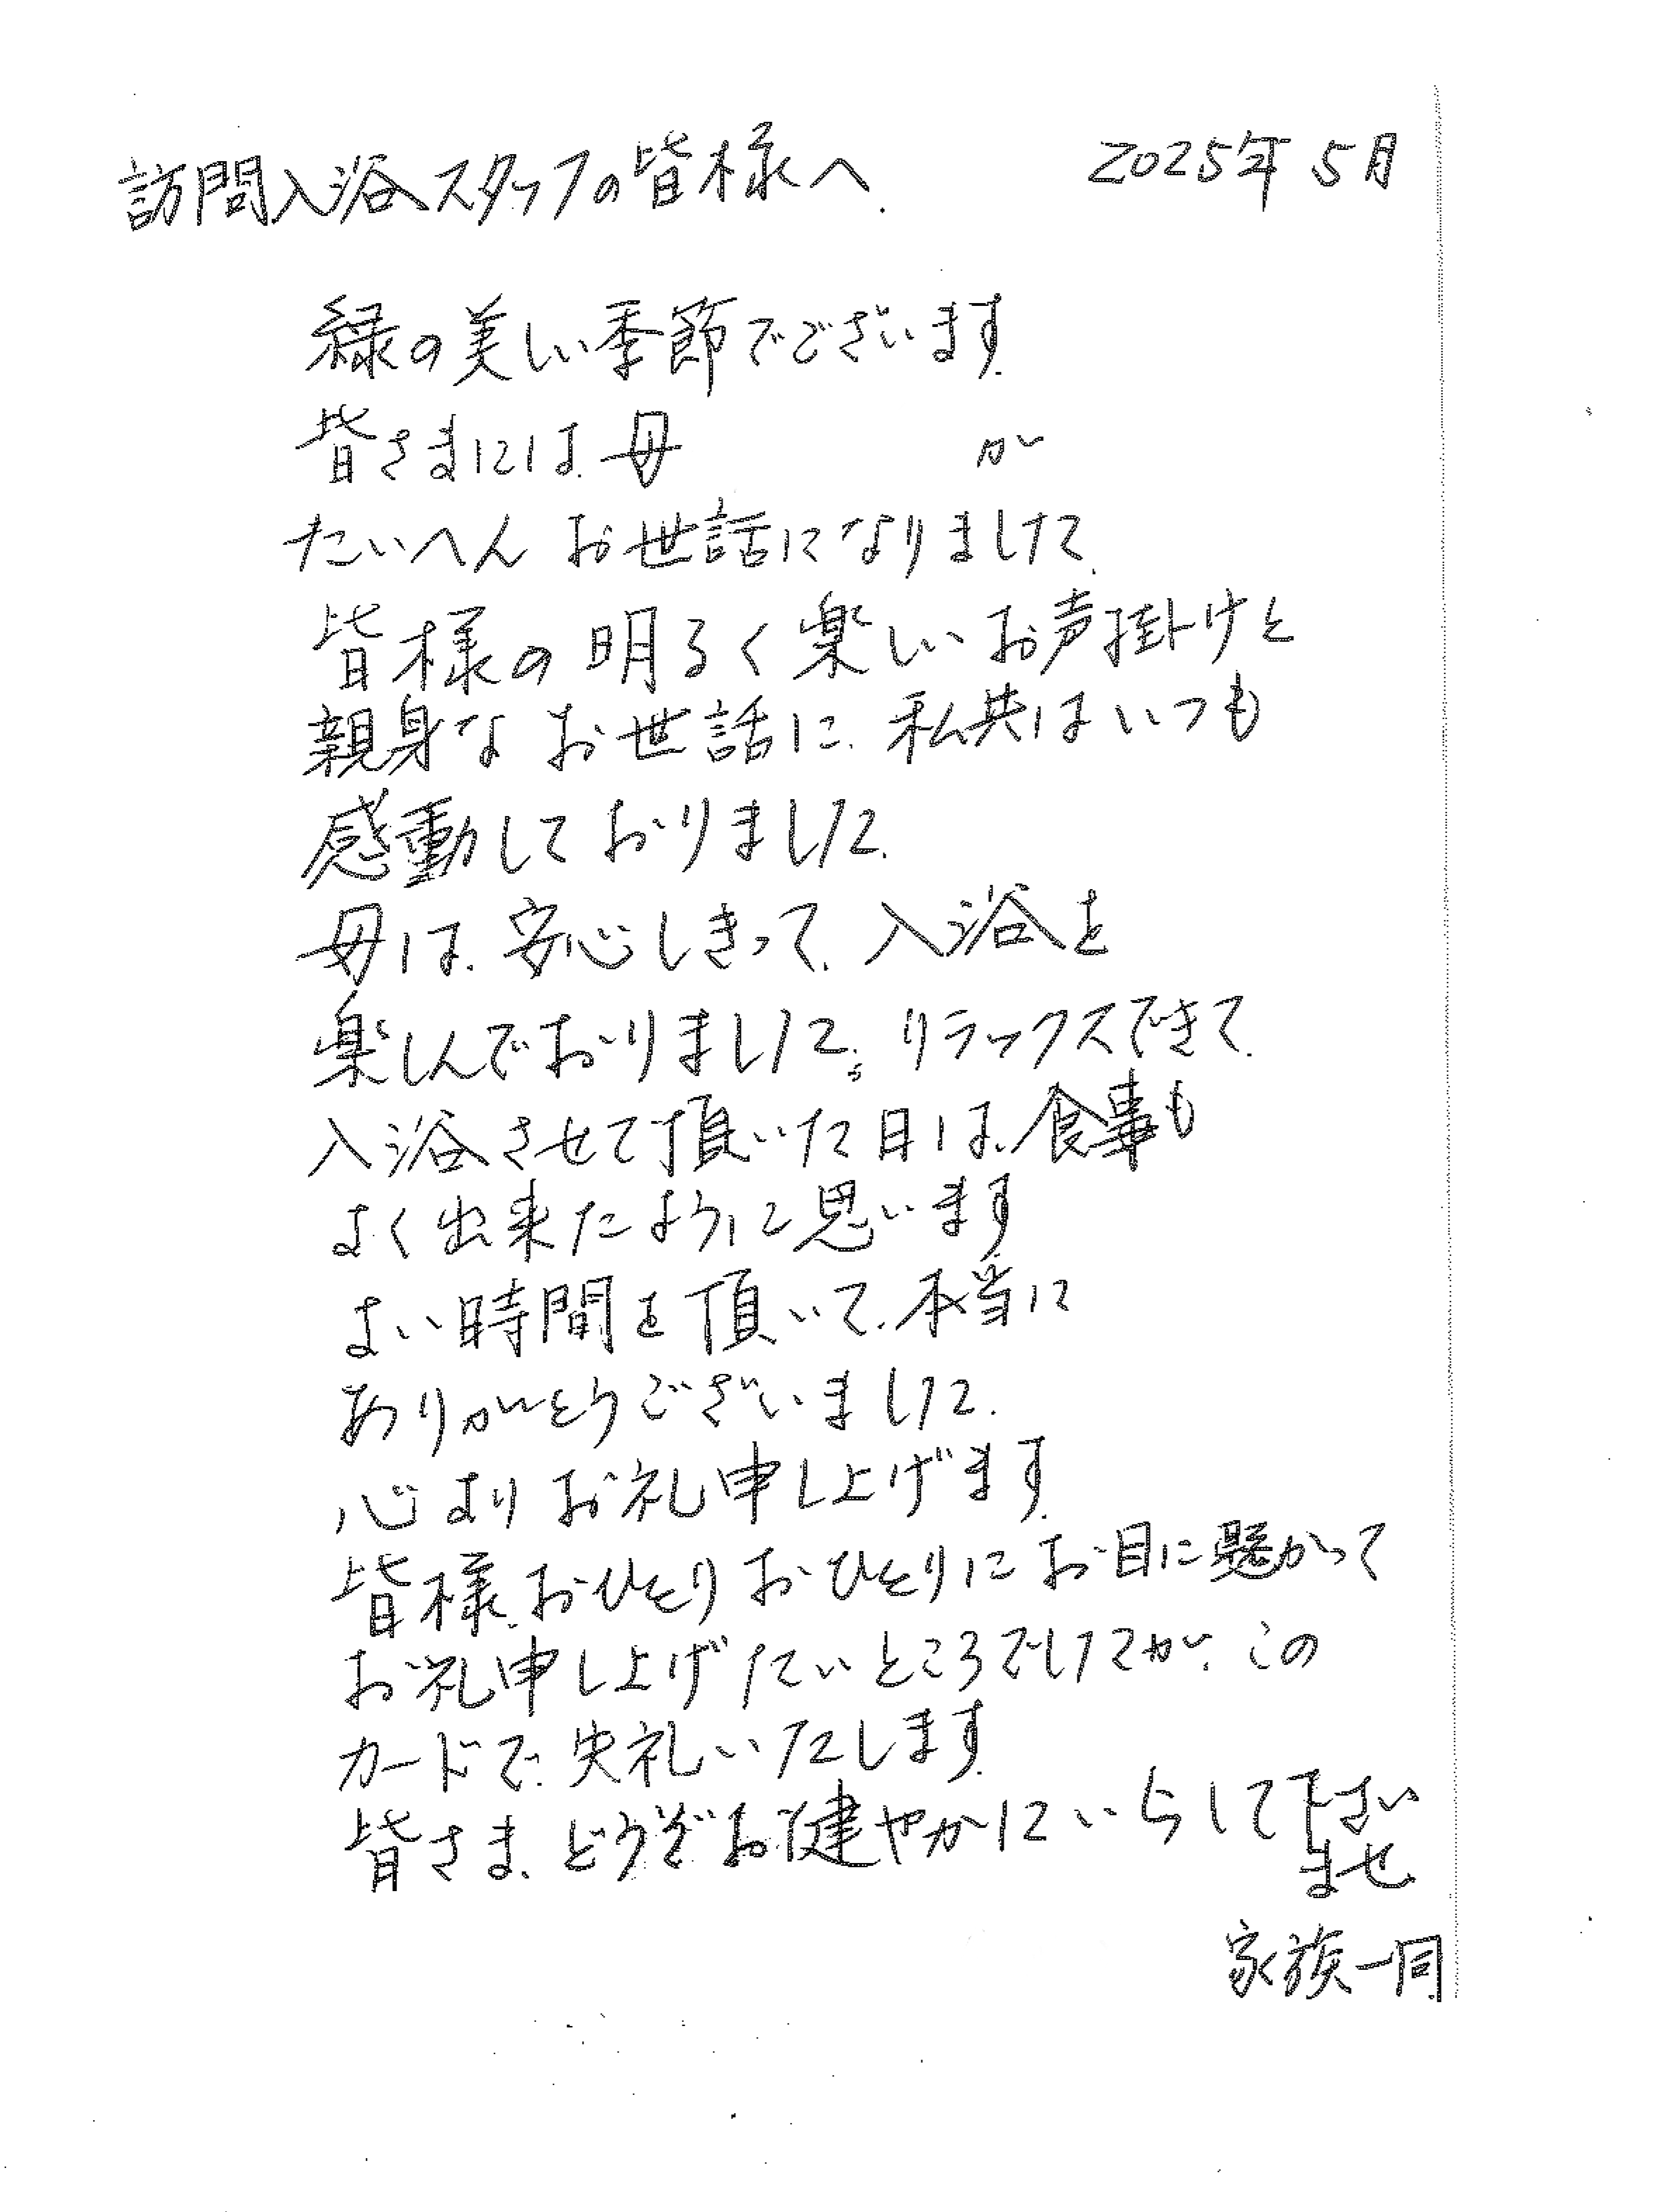 訪問入浴スタッフの皆様へ. 2025年5月
緑の美しい季節でございます.
皆さまには.母 が
たいへん お世話になりまして.
皆様の明るく楽しいお声掛けと
親身な お世話に.私共はいつも
感動しておりました.
母は.安心しきって.入浴を
楽しんでおりました。リラックスできて.
入浴させて頂いた日は.食事も
よく出来たように思います
よい時間を頂いて.本当に
ありがとうございました.
心よりお礼申し上げます.
皆様.おひとりおひとりにお目に懸かって
お礼申し上げたいところでしたが.この
カードで.失礼いたします.
皆さま.どうぞお健やかにいらして下さい
ませ
家族一同